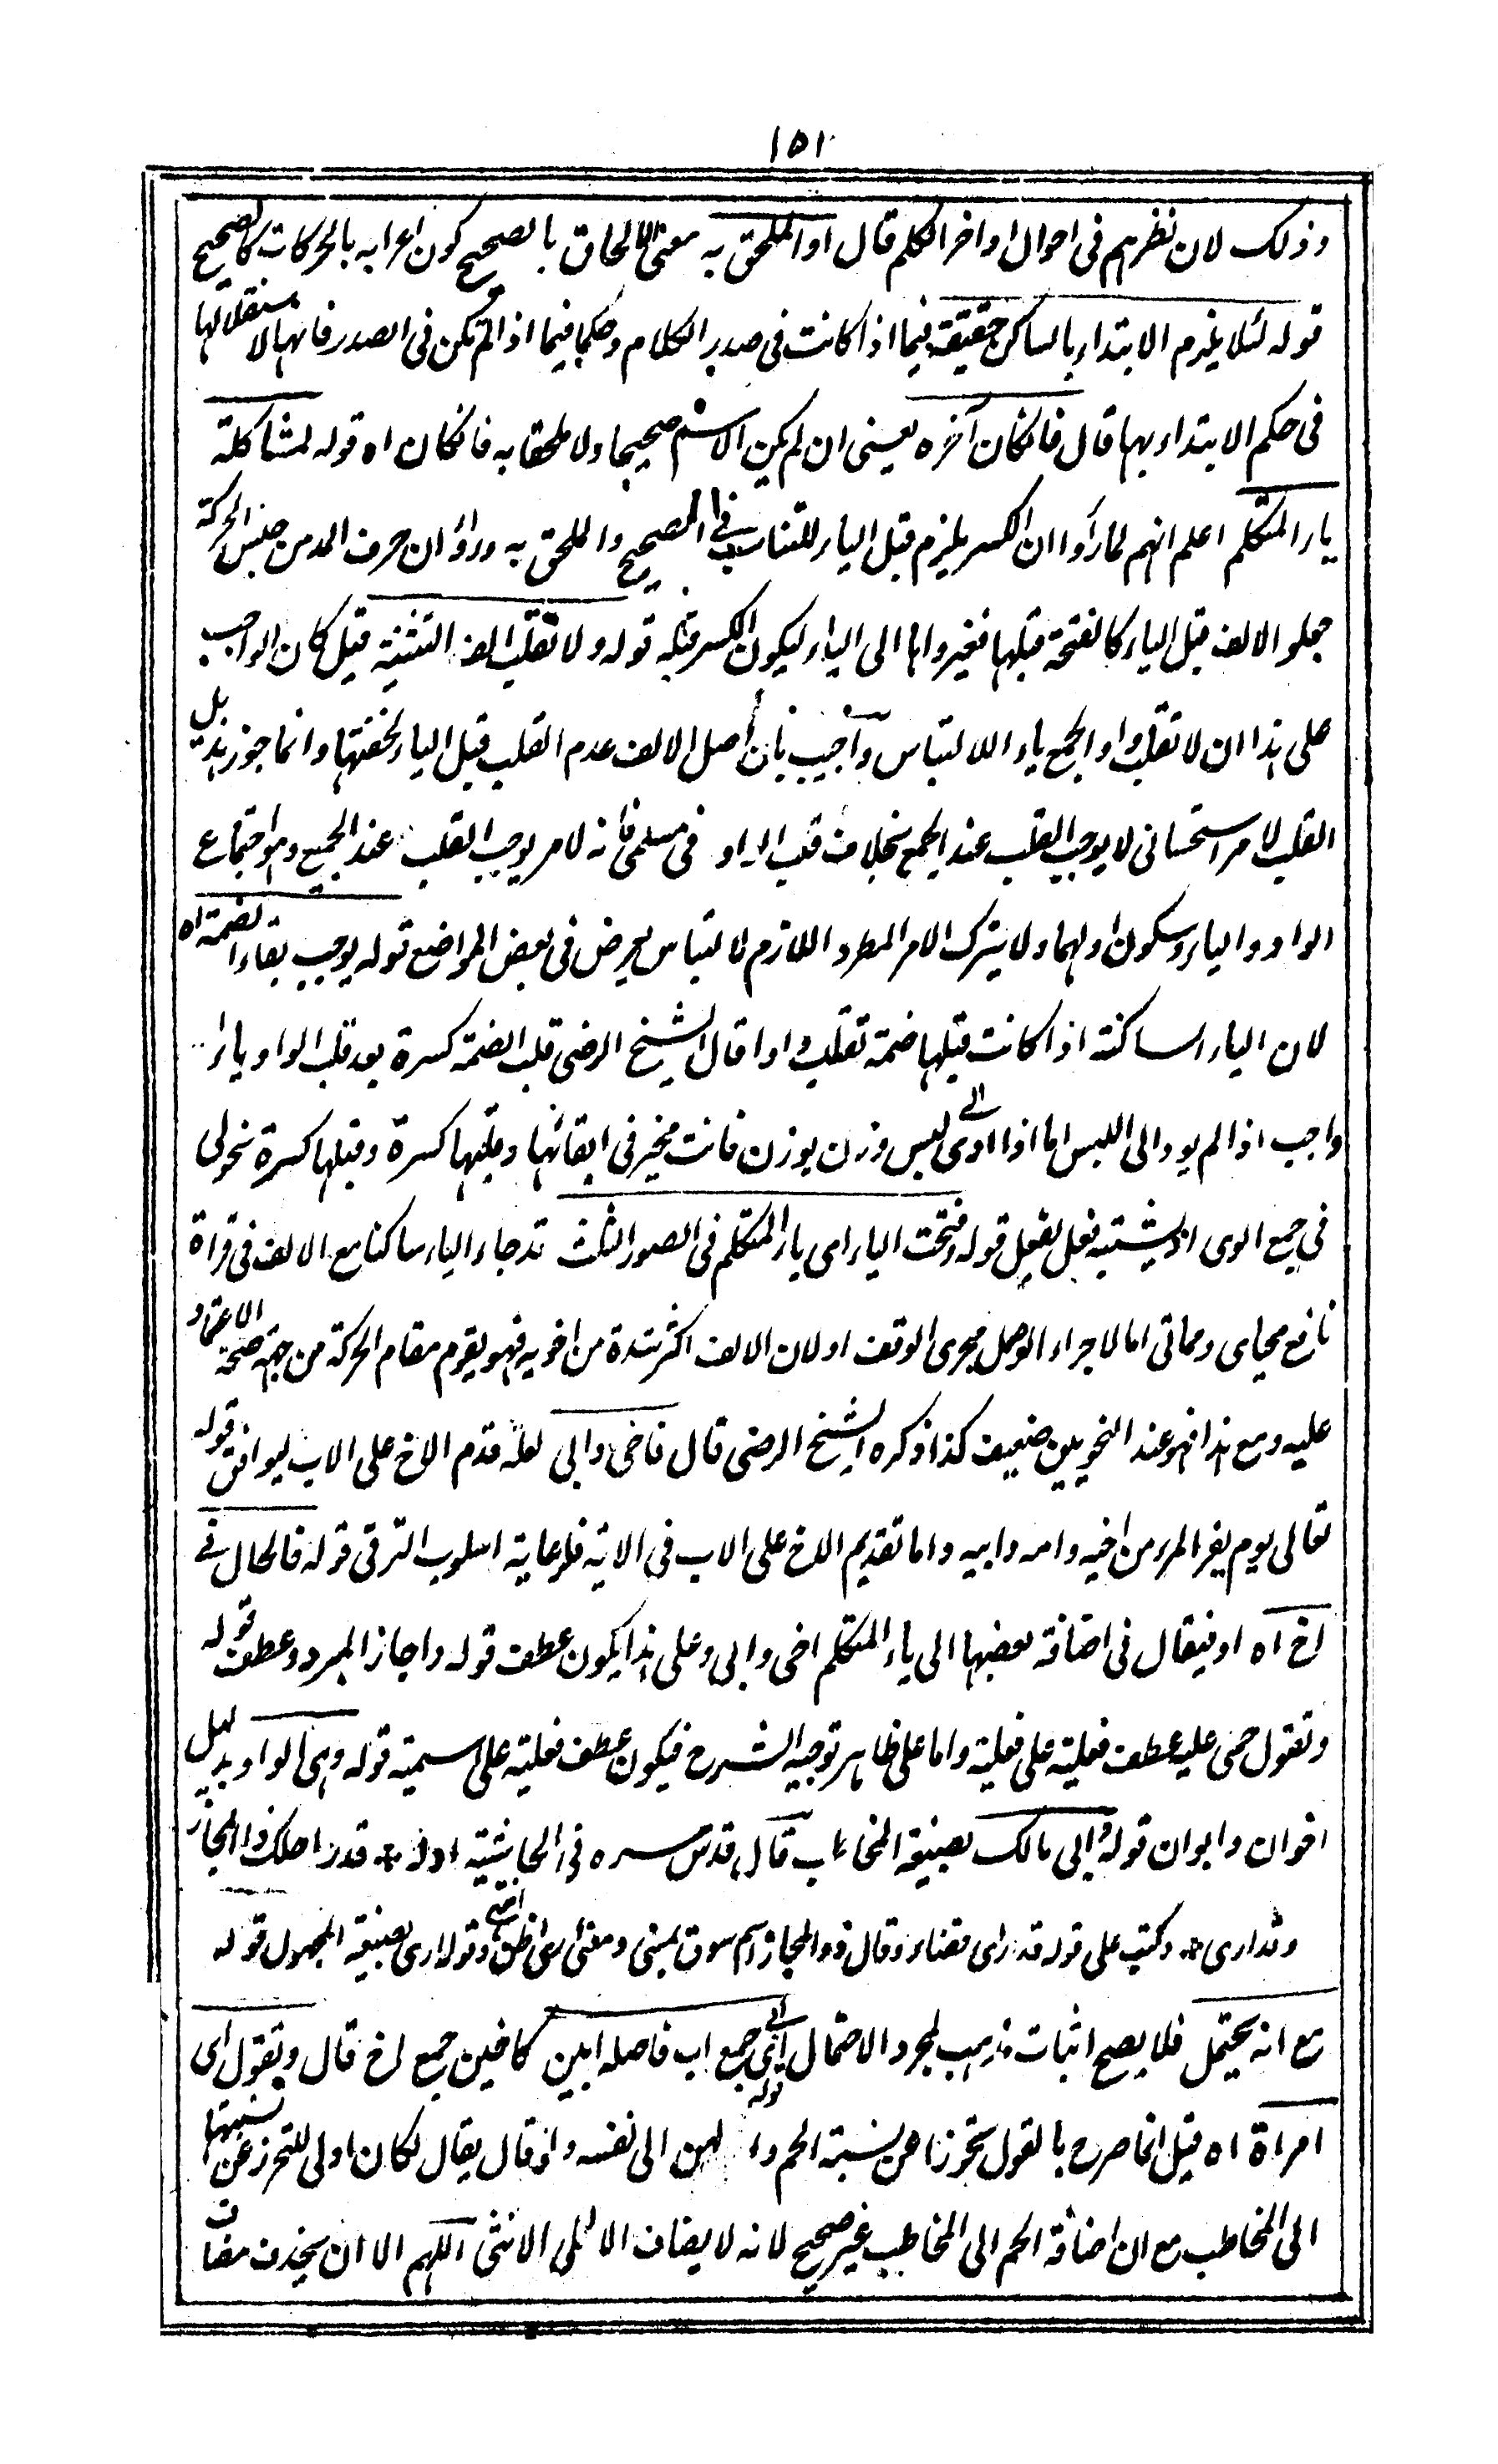 ١٥١
وذلك لان نظرهم فى احوال اواخر الكلم قال او الملحق به معنى الالحاق بالصحيح كون اعرابه بالحركات كالصحيح
قوله لئلا يلزم الابتداء بالساكن حقيقة فيما اذا كانت فى صدر الكلام وحكما فيما اذا لم تكن فى الصدر فانها لاستقلالها
فى حكم الابتداء بها قال فانكان آخره يعنى ان لم يكن الاسم صحيحا ولا ملحقا به فانكان اه قوله لمشاكلة
ياء المتكلم اعلم انهم لما رأوا ان الكسر يلزم قبل الياء للتناسب فى الصحيح والملحق به ورأوا ان حرف المد من جنس الحركة
جعلوا الالف قبل الياء كالفتحة قبلها فغيروها الى الياء ليكون الكسر قبله قوله ولا تقلب الف التثنية قيل كان الواجب
على هذا ان لا تقلب واو الجمع ياء للالتباس واجيب بأن اصل الالف عدم القلب قبل الياء لخفتها وانما جوز هذيل
القلب لامر استحسانى لا يوجب القلب عند الجمع بخلاف قلب الواو فى مسلمى فأنه لامر يوجب القلب عند الجميع وهو اجتماع
الواو والياء وسكون اولهما ولا يترك الامر المطرد اللازم لالتباس يعرض فى بعض المواضع قوله يوجب بقاء الضمة اه
لان الياء الساكنة اذا كانت قبلها ضمة تقلب واوا قال الشيخ الرضى قلب الضمة كسرة بعد قلب الواو ياء
واجب اذا لم يود الى اللبس اما اذا ادى الى لبس وزن بوزن فانت مخير فى ابقائها وقلبها كسرة وقبلها كسرة نحو لى
فى جمع الوى اذ يشتبه فعل بفعل قوله وفتحت الياء اى ياء المتكلم فى الصور الثلث قد جاء الياء ساكنا مع الالف فى قراة
نافع محياى ومماتى اما لاجراء الوصل مجرى الوقف او لان الالف اكثر مدة من اخويه فهو يقوم مقام الحركة من جهة صحة الاعتماد
عليه ومع هذا فهو عند النحويين ضعيف كذا ذكره الشيخ الرضى قال فاخى وابى لعله قدم الاخ على الاب ليوافق قوله
تعالى يوم يفر المرء من اخيه وامه وابيه واما تقديم الاخ على الاب فى الاية فلرعاية اسلوب الترقى قوله فالحال فى
اخ اه او فيقال فى اضافة بعضها الى ياء المتكلم اخى وابى وعلى هذا يكون عطف قوله واجاز المبرد وعطف قوله
وتقول حمى عليه عطف فعلية على فعلية واما على ظاهر توجيه الشرح فيكون عطف فعلية على اسمية قوله وهى الواو بدليل
اخوان وابوان قوله وابى مالك بصيغة المخاطب قال قدس سره فى الحاشية اوله * قدر احلك ذا المجاز
وقد ارى * وكتب على قوله قدر اى قضاء وقال ذو المجاز اسم سوق بمنى ومعنى ارى اظن اهـ وقوله ارى بصيغة المجهول قوله
مع انه يحتمل فلا يصح اثبات مذهب لمجرد الاحتمال قوله ابى جمع اب فاصله ابين كاخين جمع اخ قال وتقول اى
امراة اه قيل انما صرح بالقول تحرزا عن نسبة الحم والهن الى نفسه ولو قال يقال لكان اولى للتحرز عن نسبتها
الى المخاطب مع ان اضافة الحم الى المخاطب غير صحيح لانه لا يضاف الا الى الانثى اللهم الا ان يحذف مضاف